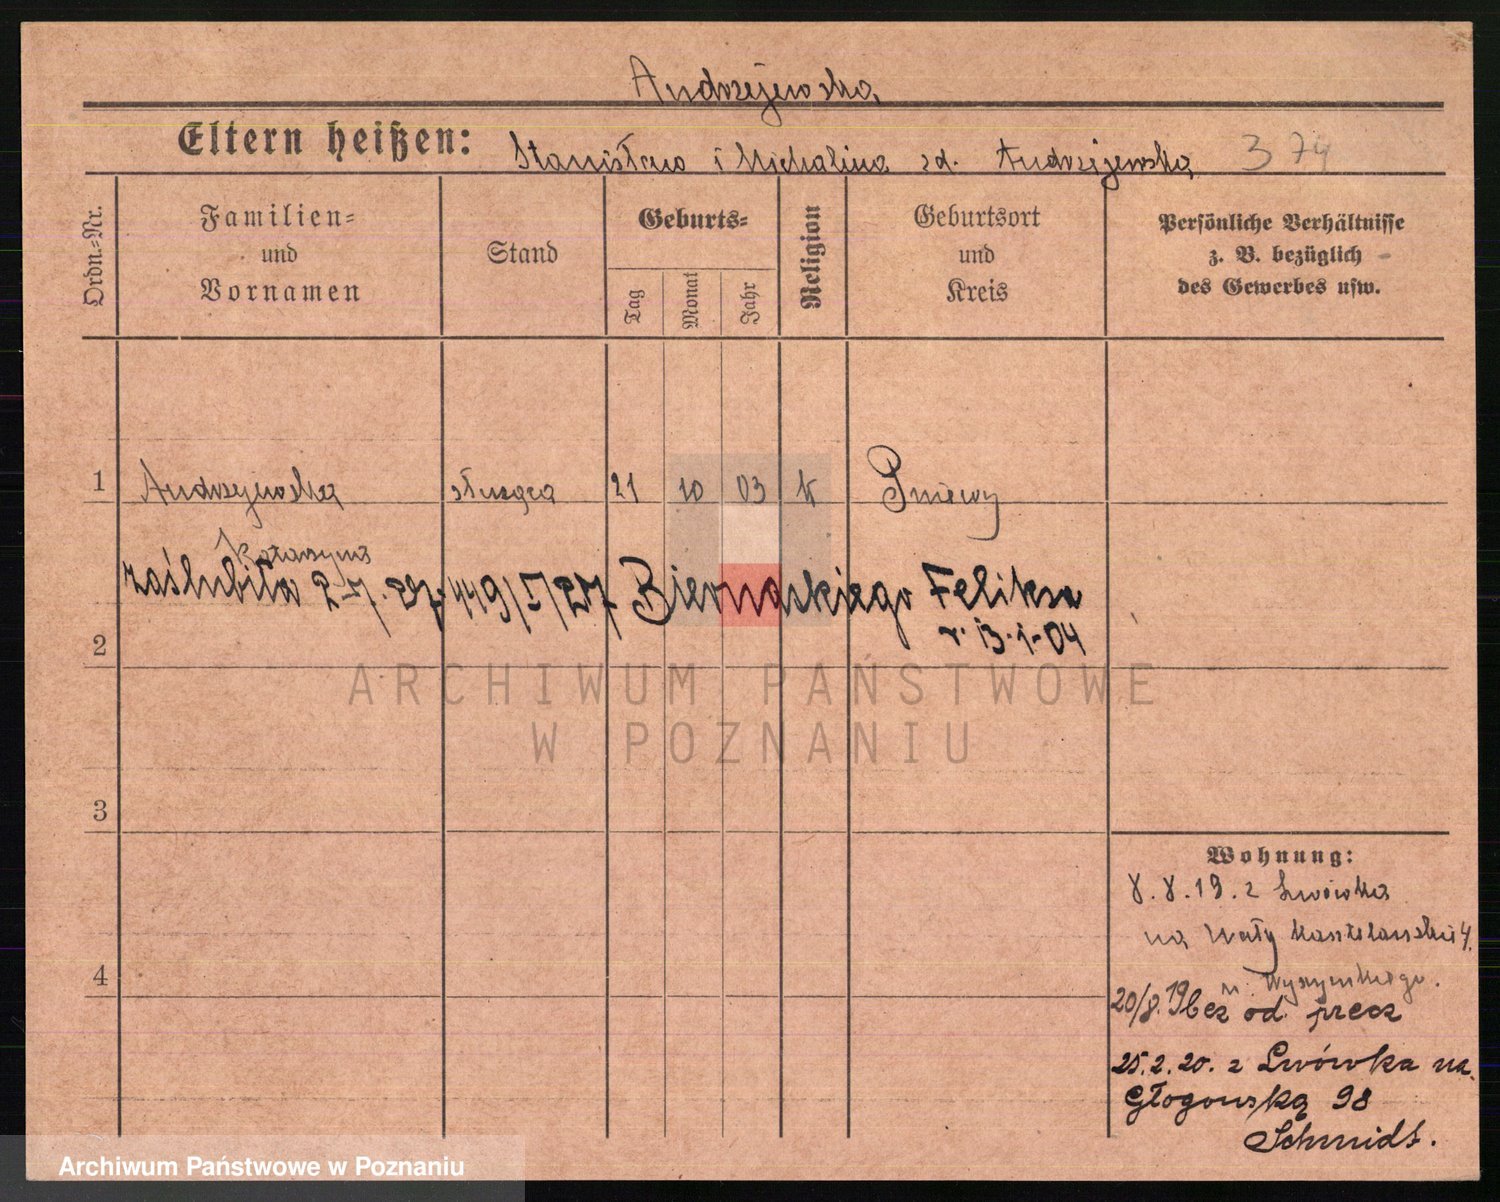 Andrzejewska
Eltern heißen: Stanisław i Michalina zd. Andrzejewska 374
Ordn.-Nr.
Familien-
und
Vornamen
Stand
Geburts-
Tag
Monat
Jahr
Religion
Geburtsort
und
Kreis
Persönliche Verhältnisse
z. B. bezüglich
des Gewerbes usw.
1 Andrzejewska służąca 21 10 03 k Pniewy
Katarzyna
zaślubiła 2-7. 27. 449/I/27 Biernackiego Feliksa
r. 13-1-04
2
ARCHIWUM PAŃSTWOWE
W POZNANIU
3
4
Wohnung:
8.8.19. z Lwówka
na Wały Kasztelańskie 4.
u. Wyszyńskiego.
20/8.19 bez od precz
25.2.20. z Lwówka na
Głogowską 98
Schmidt.
Archiwum Państwowe w Poznaniu